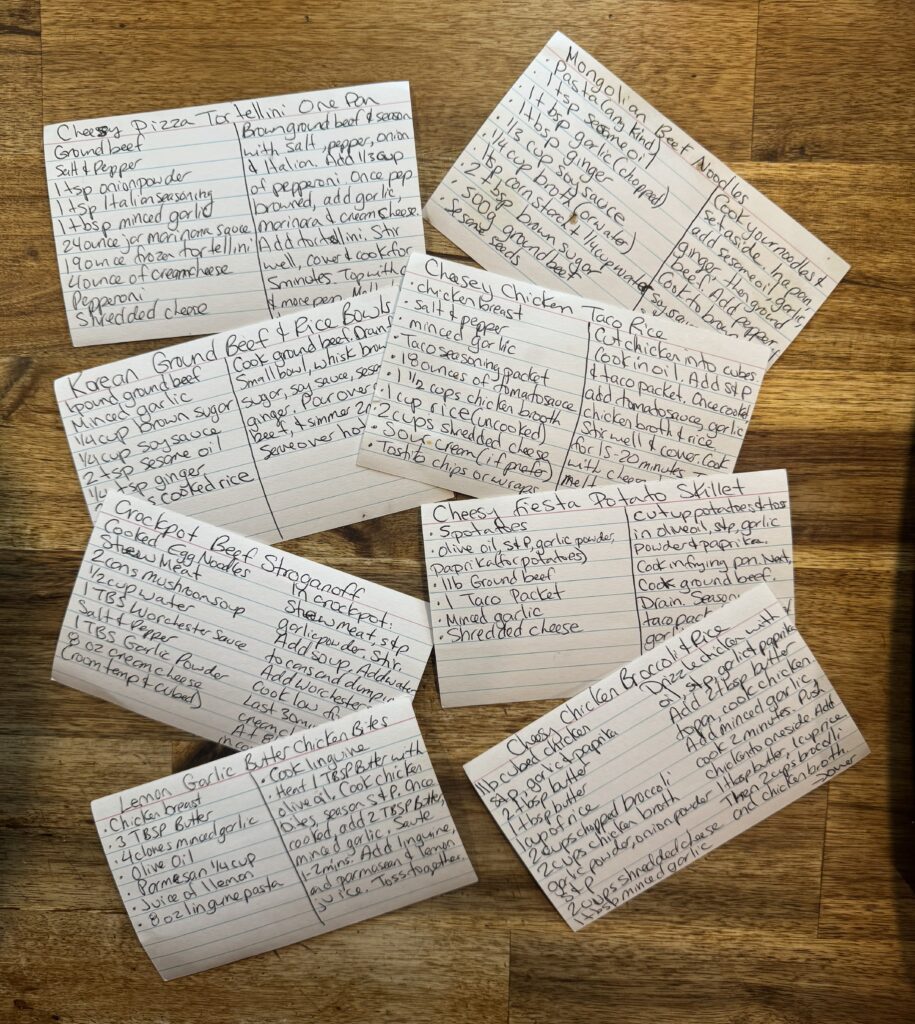 Cheesy Pizza Tortellini One Pan
Ground beef
Salt & Pepper
1 tsp onion powder
1 tsp Italian seasoning
1 tbsp minced garlic
24 ounce jar marinara sauce
19 ounce frozen tortellini
4 ounce of cream cheese
Pepperoni
Shredded cheese
Brown ground beef & season
with salt, pepper, onion
& Italian. Add 1/3 cup
of pepperoni. Once pep
browned, add garlic,
marinara & cream cheese.
Add tortellini. Stir
well, cover & cook for
5 minutes. Top with c
& more pep. Melt
Mongolian Beef Noodles
• Pasta (any kind)
• 1 tsp sesame oil
• 1 tbsp garlic (chopped)
• 1 tsp ginger
• 1/3 cup soy sauce
• 1/4 cup broth (or water)
1 tsp corn starch + 1/4 cup water
• 2 tbsp brown sugar
• 500g ground beef
• sesame seeds
Cook your noodles &
set aside. In a pan
add sesame oil, garlic
ginger, then ground
beef. Add pepper
Cook to brown
Korean Ground Beef & Rice Bowls
1 pound ground beef
Minced garlic
1/4 cup brown sugar
1/4 cup soy sauce
2 tsp sesame oil
1/4 tsp ginger
cooked rice
Cook ground beef. Drain
Small bowl, whisk brow
sugar, soy sauce, sesa
ginger. Pour over
beef & simmer 2 m
Serve over hot
Cheesy Chicken Taco Rice
• chicken breast
• salt & pepper
minced garlic
• Taco seasoning packet
• 18 ounces of tomato sauce
• 1 1/2 cups chicken broth
• 1 cup rice (uncooked)
• 2 cups shredded cheese
• Sour cream (if prefer)
• Tostito chips or wraps
Cut chicken into cubes,
cook in oil. Add s & p
& taco packet. Once cooked,
add tomato sauce, garlic
chicken broth & rice
Stir well & cover. Cook
for 15-20 minutes
with cheese
melt
Crockpot Beef Stroganoff
Cooked Egg Noodles
Stew Meat
2 cans mushroom soup
1/2 cup water
1 TBS Worchester Sauce
Salt & Pepper
1 TBS Garlic Powder
8 oz cream cheese
(room temp & cubed)
In crockpot:
Stew meat, s & p
garlic powder. Stir.
Add soup. Add water
to cans and dump in
Add Worchester
Cook low
Last 30 m
cream
Cheesy Fiesta Potato Skillet
• 5 potatoes
• olive oil, s & p, garlic powder,
paprika (for potatoes)
• 1 lb Ground beef
• 1 Taco Packet
• Minced garlic
• Shredded cheese
cut up potatoes & toss
in olive oil, s & p, garlic
powder & paprika.
Cook in frying pan. Next,
Cook ground beef.
Drain. Season
taco pack
garl
Lemon Garlic Butter Chicken Bites
• Chicken breast
• 3 TBSP Butter
• 4 cloves minced garlic
• Olive Oil
• Parmesan 1/4 cup
• Juice of 1 lemon
• 8 oz linguine pasta
• Cook linguine
• Heat 1 TBSP Butter with
olive oil. Cook chicken
bites, season s & p. Once
cooked, add 2 TBSP Butter,
minced garlic. Saute
1-2 mins. Add linguine,
and parmasean & lemon
juice. Toss together.
Cheesy Chicken Broccoli & Rice
1 lb cubed chicken
s & p, garlic & paprika
1 tbsp butter
1 tbsp butter
1 cup of rice
2 cups chopped broccoli
2 cups chicken broth
garlic powder, onion powder
s & p
2 cups shredded cheese
1 tbsp minced garlic
Drizzle chicken with
oil, s & p, garlic & paprika
Add 2 tbsp butter
to pan, cook chicken
Add minced garlic,
cook 2 minutes. Push
chicken to one side. Add
1 tbsp butter, 1 cup rice
Then 2 cups broccoli
and chicken broth